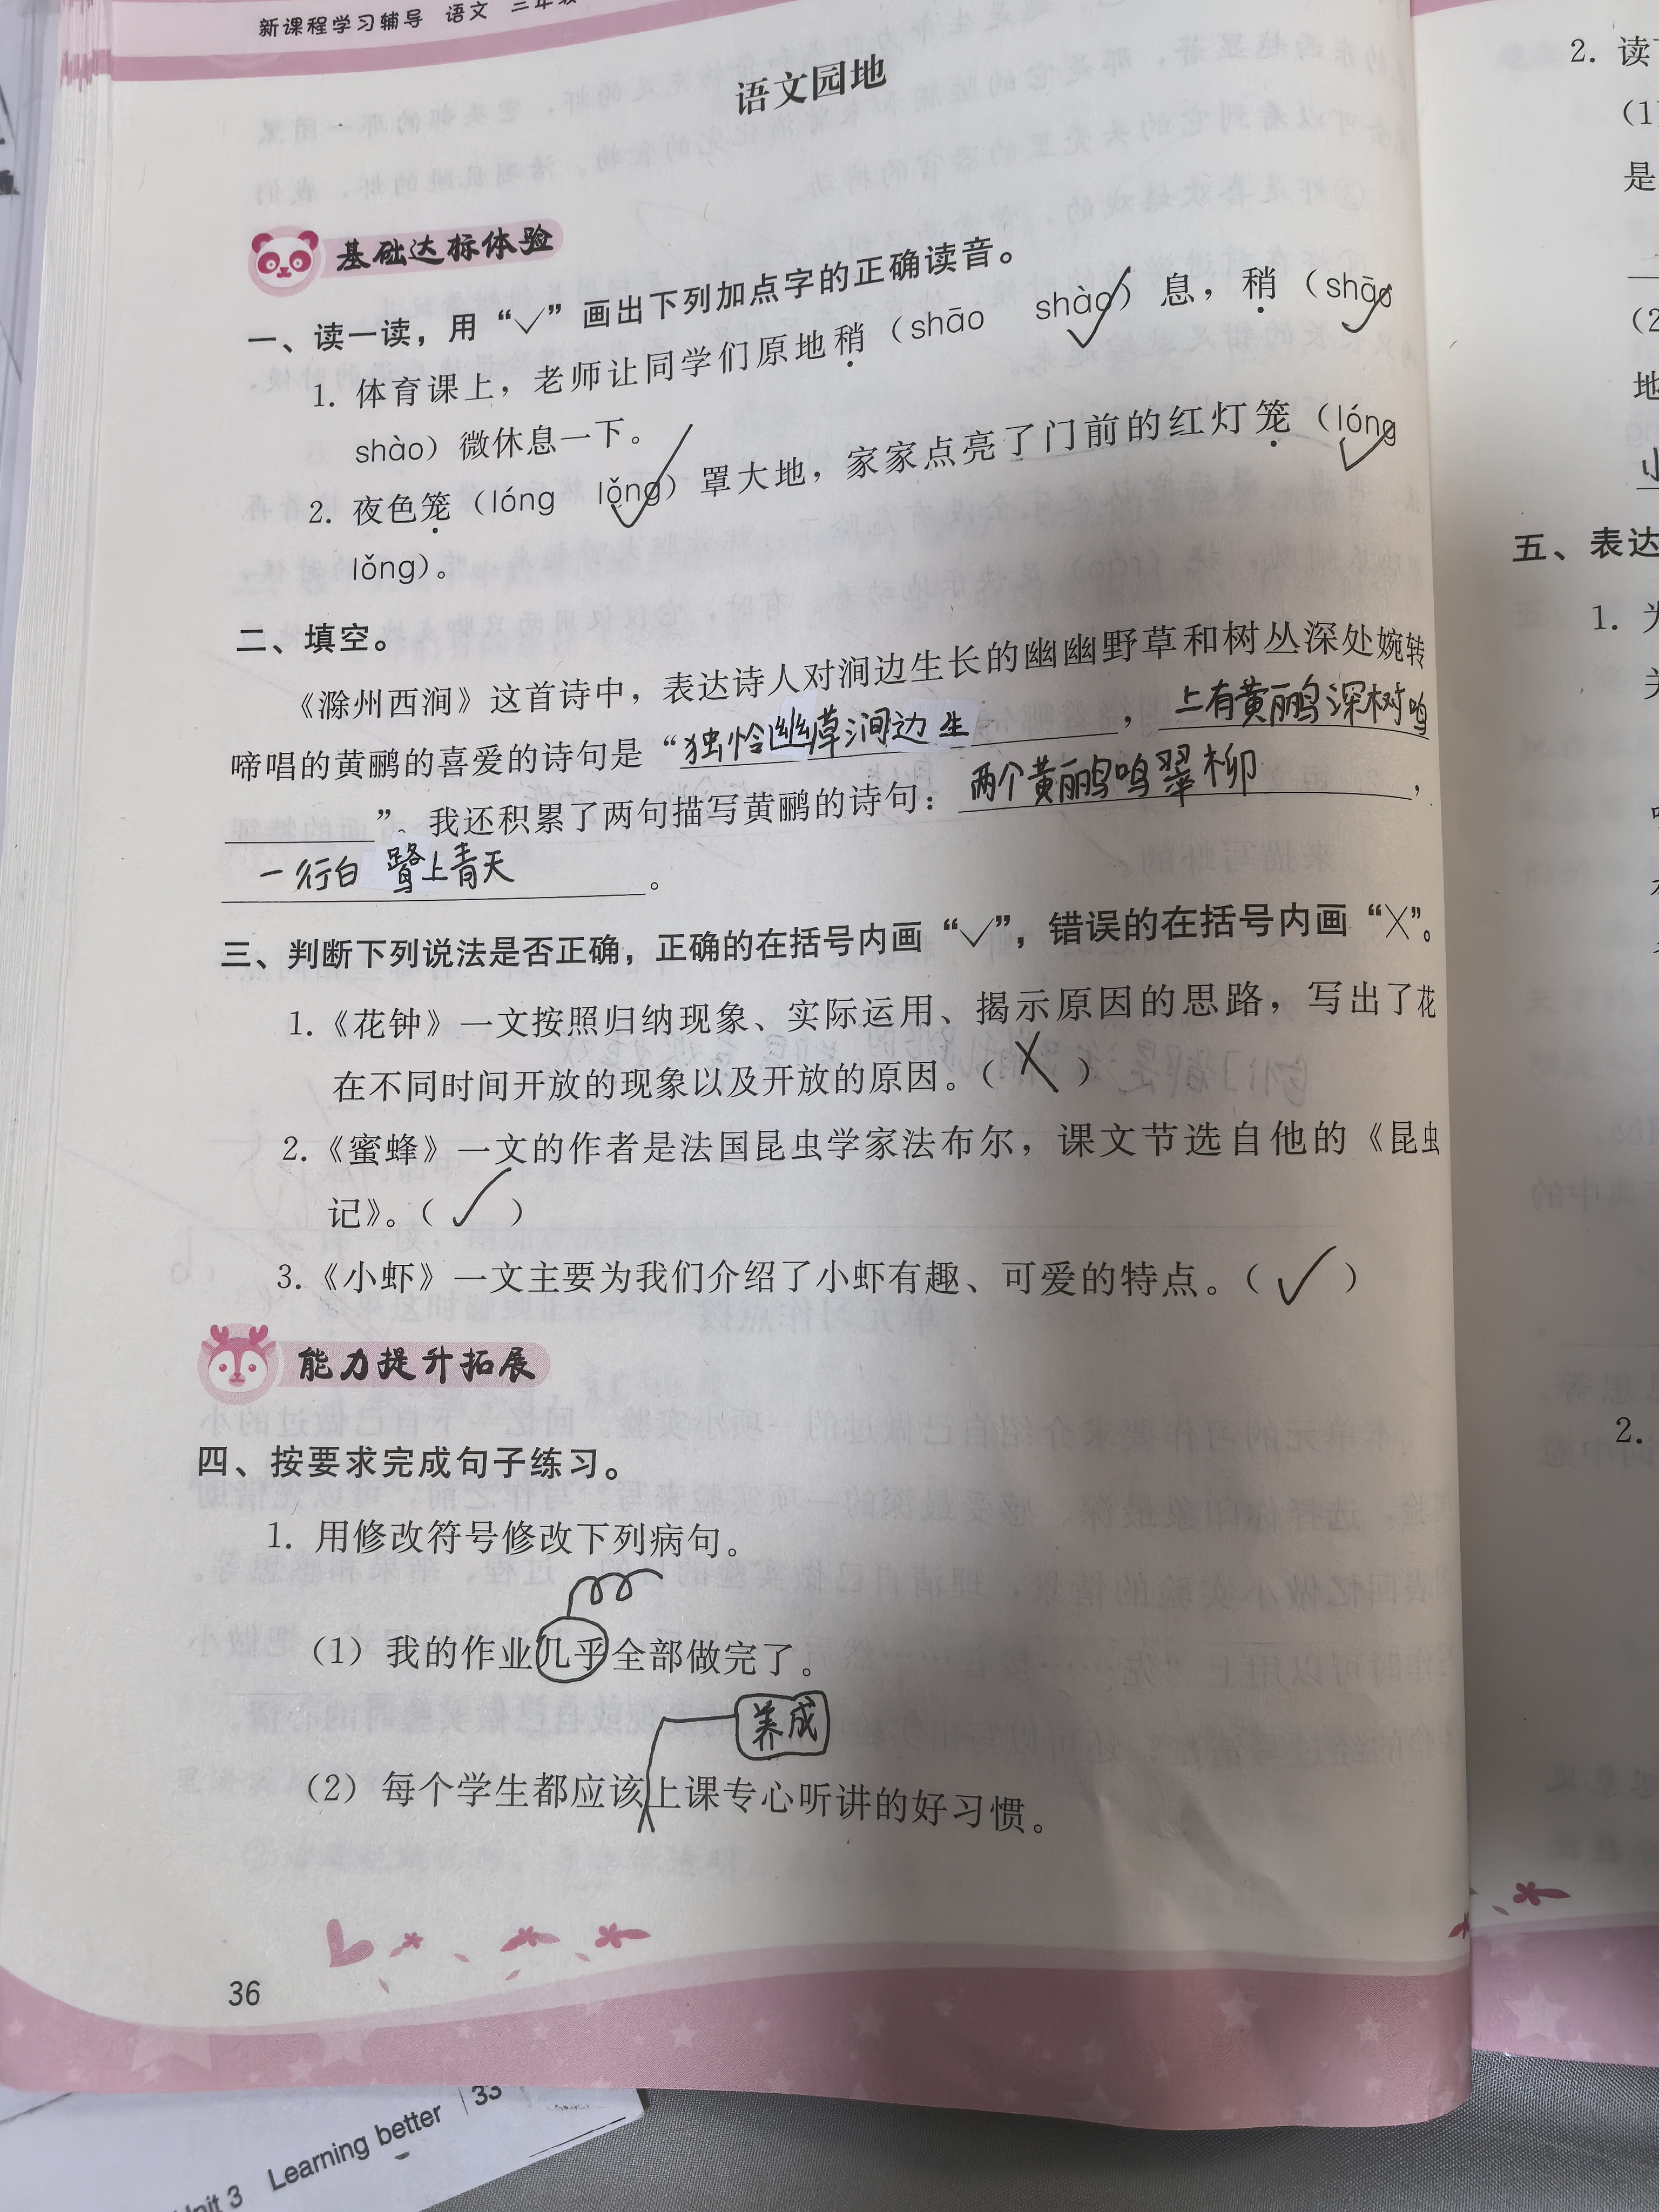 新课程学习辅导 语文
语文园地
基础达标体验
一、读一读，用“√”画出下列加点字的正确读音。
1. 体育课上，老师让同学们原地稍（shāo shào√）息，稍（shāo√
shào）微休息一下。
2. 夜色笼（lóng lǒng√）罩大地，家家点亮了门前的红灯笼（lóng√
lǒng）。
二、填空。
《滁州西涧》这首诗中，表达诗人对涧边生长的幽幽野草和树丛深处婉转
啼唱的黄鹂的喜爱的诗句是“独怜幽草涧边生，上有黄鹂深树鸣
”。我还积累了两句描写黄鹂的诗句：两个黄鹂鸣翠柳，
一行白鹭上青天。
三、判断下列说法是否正确，正确的在括号内画“√”，错误的在括号内画“×”。
1.《花钟》一文按照归纳现象、实际运用、揭示原因的思路，写出了花
在不同时间开放的现象以及开放的原因。（×）
2.《蜜蜂》一文的作者是法国昆虫学家法布尔，课文节选自他的《昆虫
记》。（√）
3.《小虾》一文主要为我们介绍了小虾有趣、可爱的特点。（√）
能力提升拓展
四、按要求完成句子练习。
1. 用修改符号修改下列病句。
（1）我的作业几乎全部做完了。
养成
（2）每个学生都应该上课专心听讲的好习惯。
36
2. 读
(1)
是
(2
地
五、表达
1.
2.
33
Unit 3 Learning better